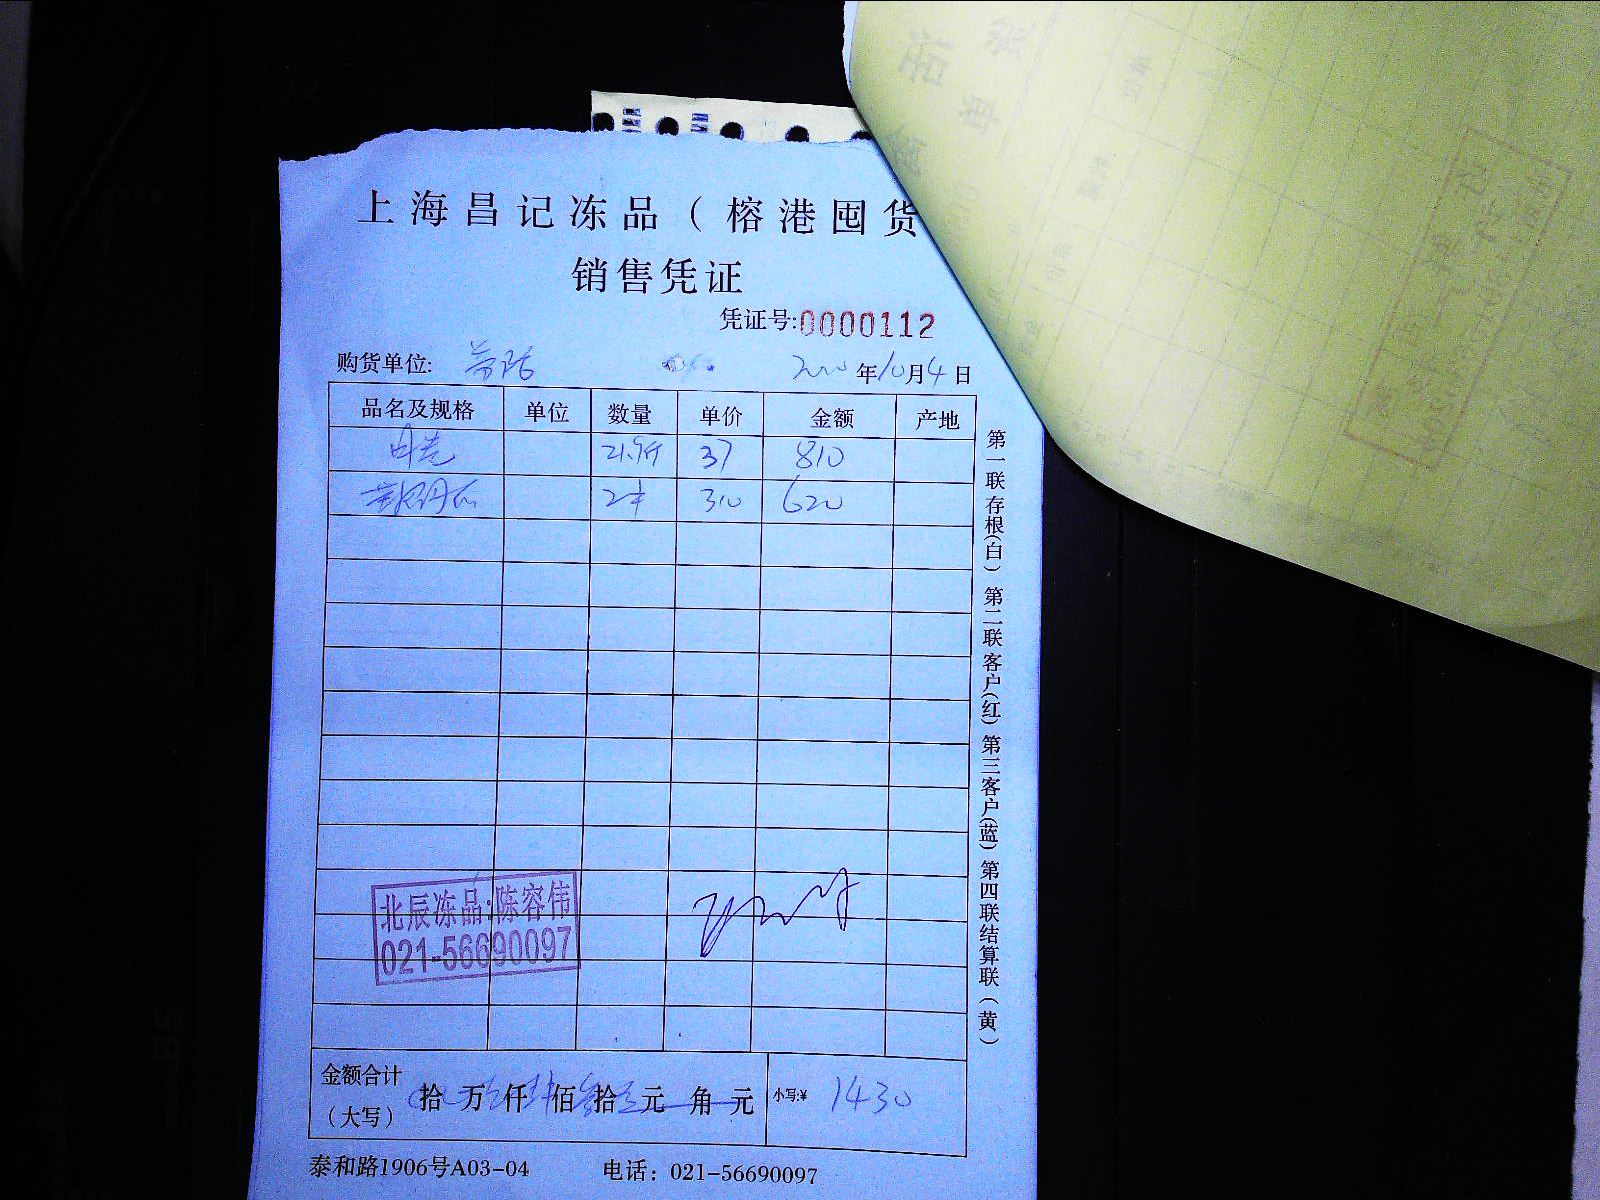 上海昌记冻品（榕港囤货
销售凭证
凭证号:0000112
购货单位: 年10月4日
品名及规格 单位 数量 单价 金额 产地
21.9斤 37 810
2 310 620
北辰冻品:陈容伟
021-56690097
金额合计
（大写）
拾 万 仟 佰 拾 元 角 元
小写:¥ 1430
泰和路1906号A03-04 电话：021-56690097
第一联存根(白) 第二联客户(红) 第三客户(蓝) 第四联结算联(黄)